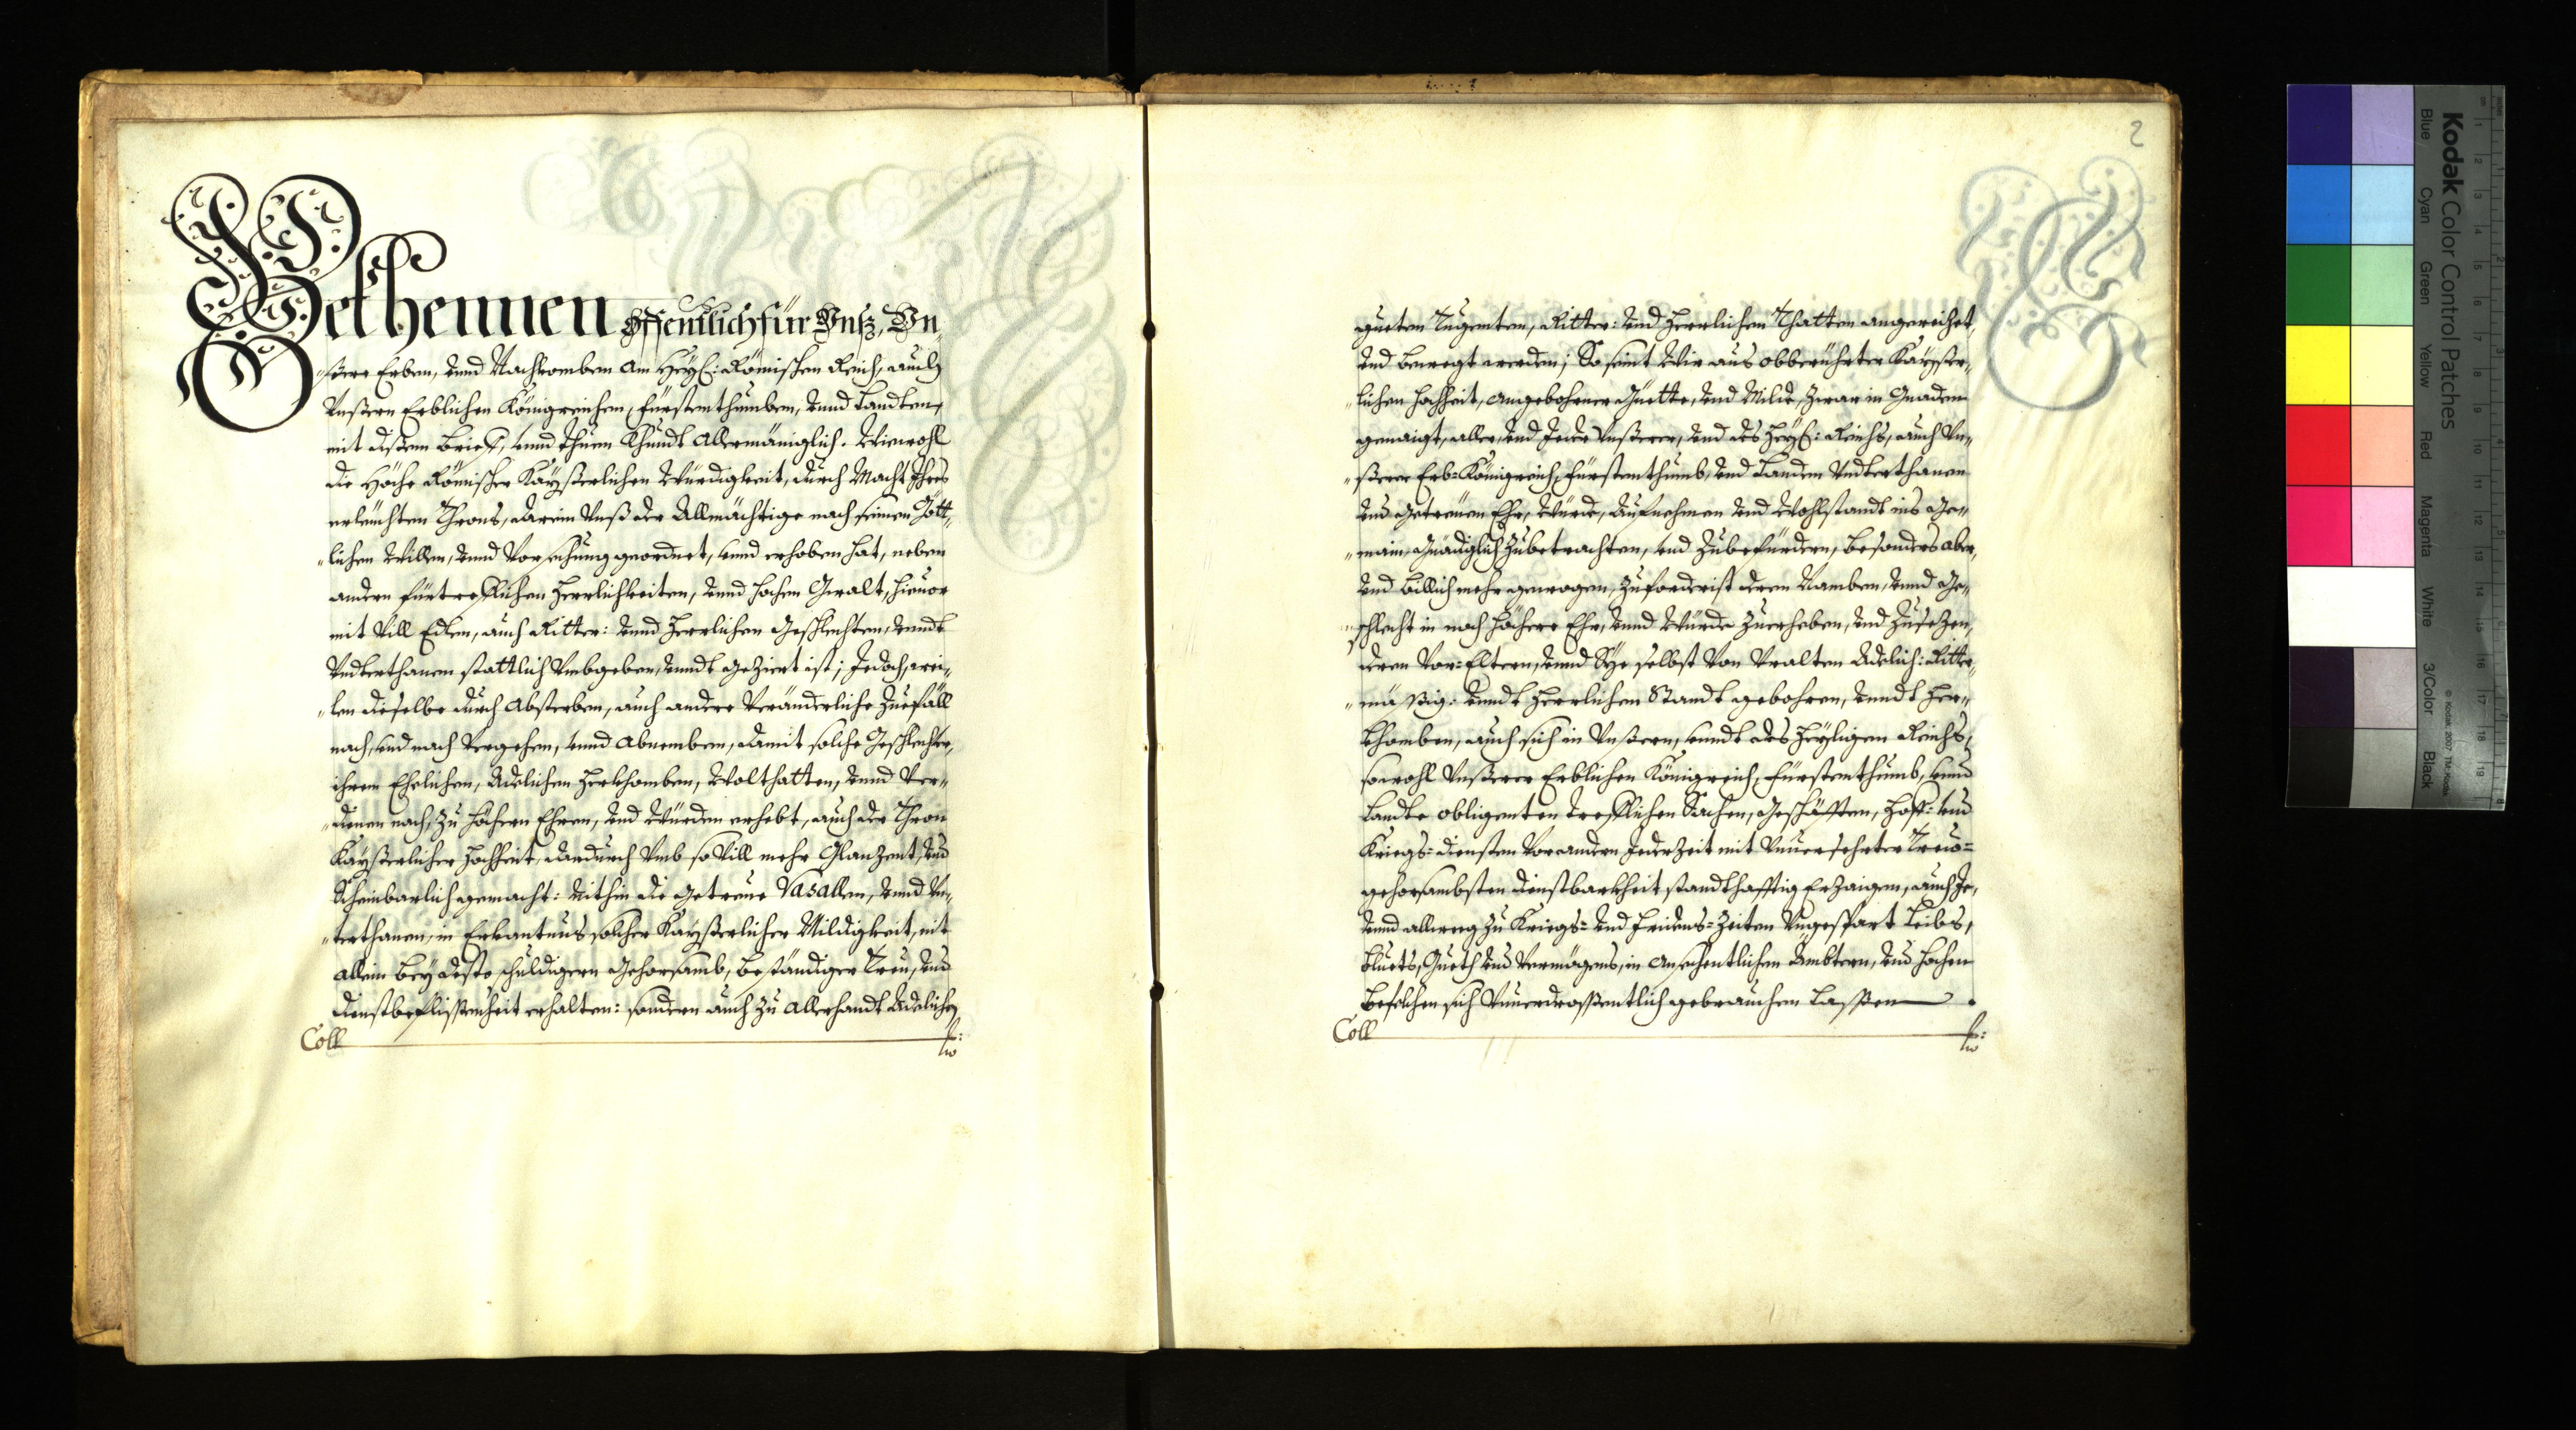 Bekhennen Offentlich für Unß, Un„
„ßere Erben, unnd Nachkomben am Heÿl: Römischen Reich, auch
Unßern Erblichen Königreichen, Fürstenthumben, unnd Landten,
mit dißem Brieff, unnd thuen Khundt Allermäniglich. Wiewohl
die Höche Römischer Kaÿßerlichen Würdigkeit, durch Macht Ihres
erleüchten Throns, darein Unß der Allmächtige nach seinen Gött„
„lichen Willen, unnd Vorsehung geordnet, unnd erhoben hat, neben
andern fürtrefflichen Herrlichkeiten, unnd hochen Gewalt, hieuor
mit Vill Edlen, auch Ritter: unnd Herrlichen Geschlechten, unndt
Undterthanen stattlich Umbgeben, unndt geziert ist; Jedoch, wei„
„len dieselbe durch Absterben, auch andere Veränderliche Zuefäll
nach, und nach Vergehen, unnd Abnemben, damit solche Geschlechter,
ihren Ehrlichen, Adelichen Herkhomben, Wolthatten, unnd Ver„
„dienen nach, zu höchern Ehren, und Würden erhebt, auch der Thron
Kaÿßerlicher Hochheit, dardurch Umb so Vill mehr Glanzent, und
Scheinbarlich gemacht: Mithin die getreue Vasallen, unnd Un„
„terthanen, in Erkantnus solcher Kaÿßerlicher Mildigkeit, nit
allein beÿ desto schuldigern Gehorsamb, beständiger Treu, und
dienstbeflißenheit erhalten: sondern auch zu Allerhandt Adelichen,
Coll fr:
2
gueten Tugenten, Ritter: und Herrlichen Thatten angereitzet,
und bewegt werden; So seint Wir aus obberührter Kaÿßer„
„lichen Hochheit, angebohrner Güette, und Milde, zwar in Gnaden
genaigt, aller, und Jeder Unßerer, und des Heÿl: Reichs, auch Un„
„ßerer Erb=Königreich, Fürstenthumb, und Landen Undterthanen
und getreüen Ehr, Würde, Aufnehmen und Wohlstandt ins Ge„
„main Gnädiglich zubetrachten, und zubefürdern, besonders aber,
und billich mehr gewogen, zuforderist deren Namben, unnd Ge„
„schlecht in noch höchere Ehr, unnd Würde zuerheben, und zusezen,
deren Vor=Eltern, unnd Sÿe selbst Von Uralten Adelich: Ritter„
„mäßig: unndt Herrlichen Standt gebohren, unndt Her„
khomben, auch sich in Unßern, unndt des Heÿligen Reichs,
sowohl Unßerer Erblichen Königreich, Fürstenthumb, unnd
Landte obligenten trefflichen Sachen, Geschäfften, Hoff: und
Kriegs=diensten Vor andern Jederzeit mit Unuersehrter Treu=
gehorsambsten dienstbarkheit standthafftig Erzaigen, auch Je,
unnd allweeg zu Kriegs= und Fridens=Zeiten Ungespart Leibs,
bluets, Gueth und Vermögens, in Ansechentlichen Ämbtern, und hochen
Befelchen sich Unuerdroßentlich gebrauchen laßen
Coll fr: